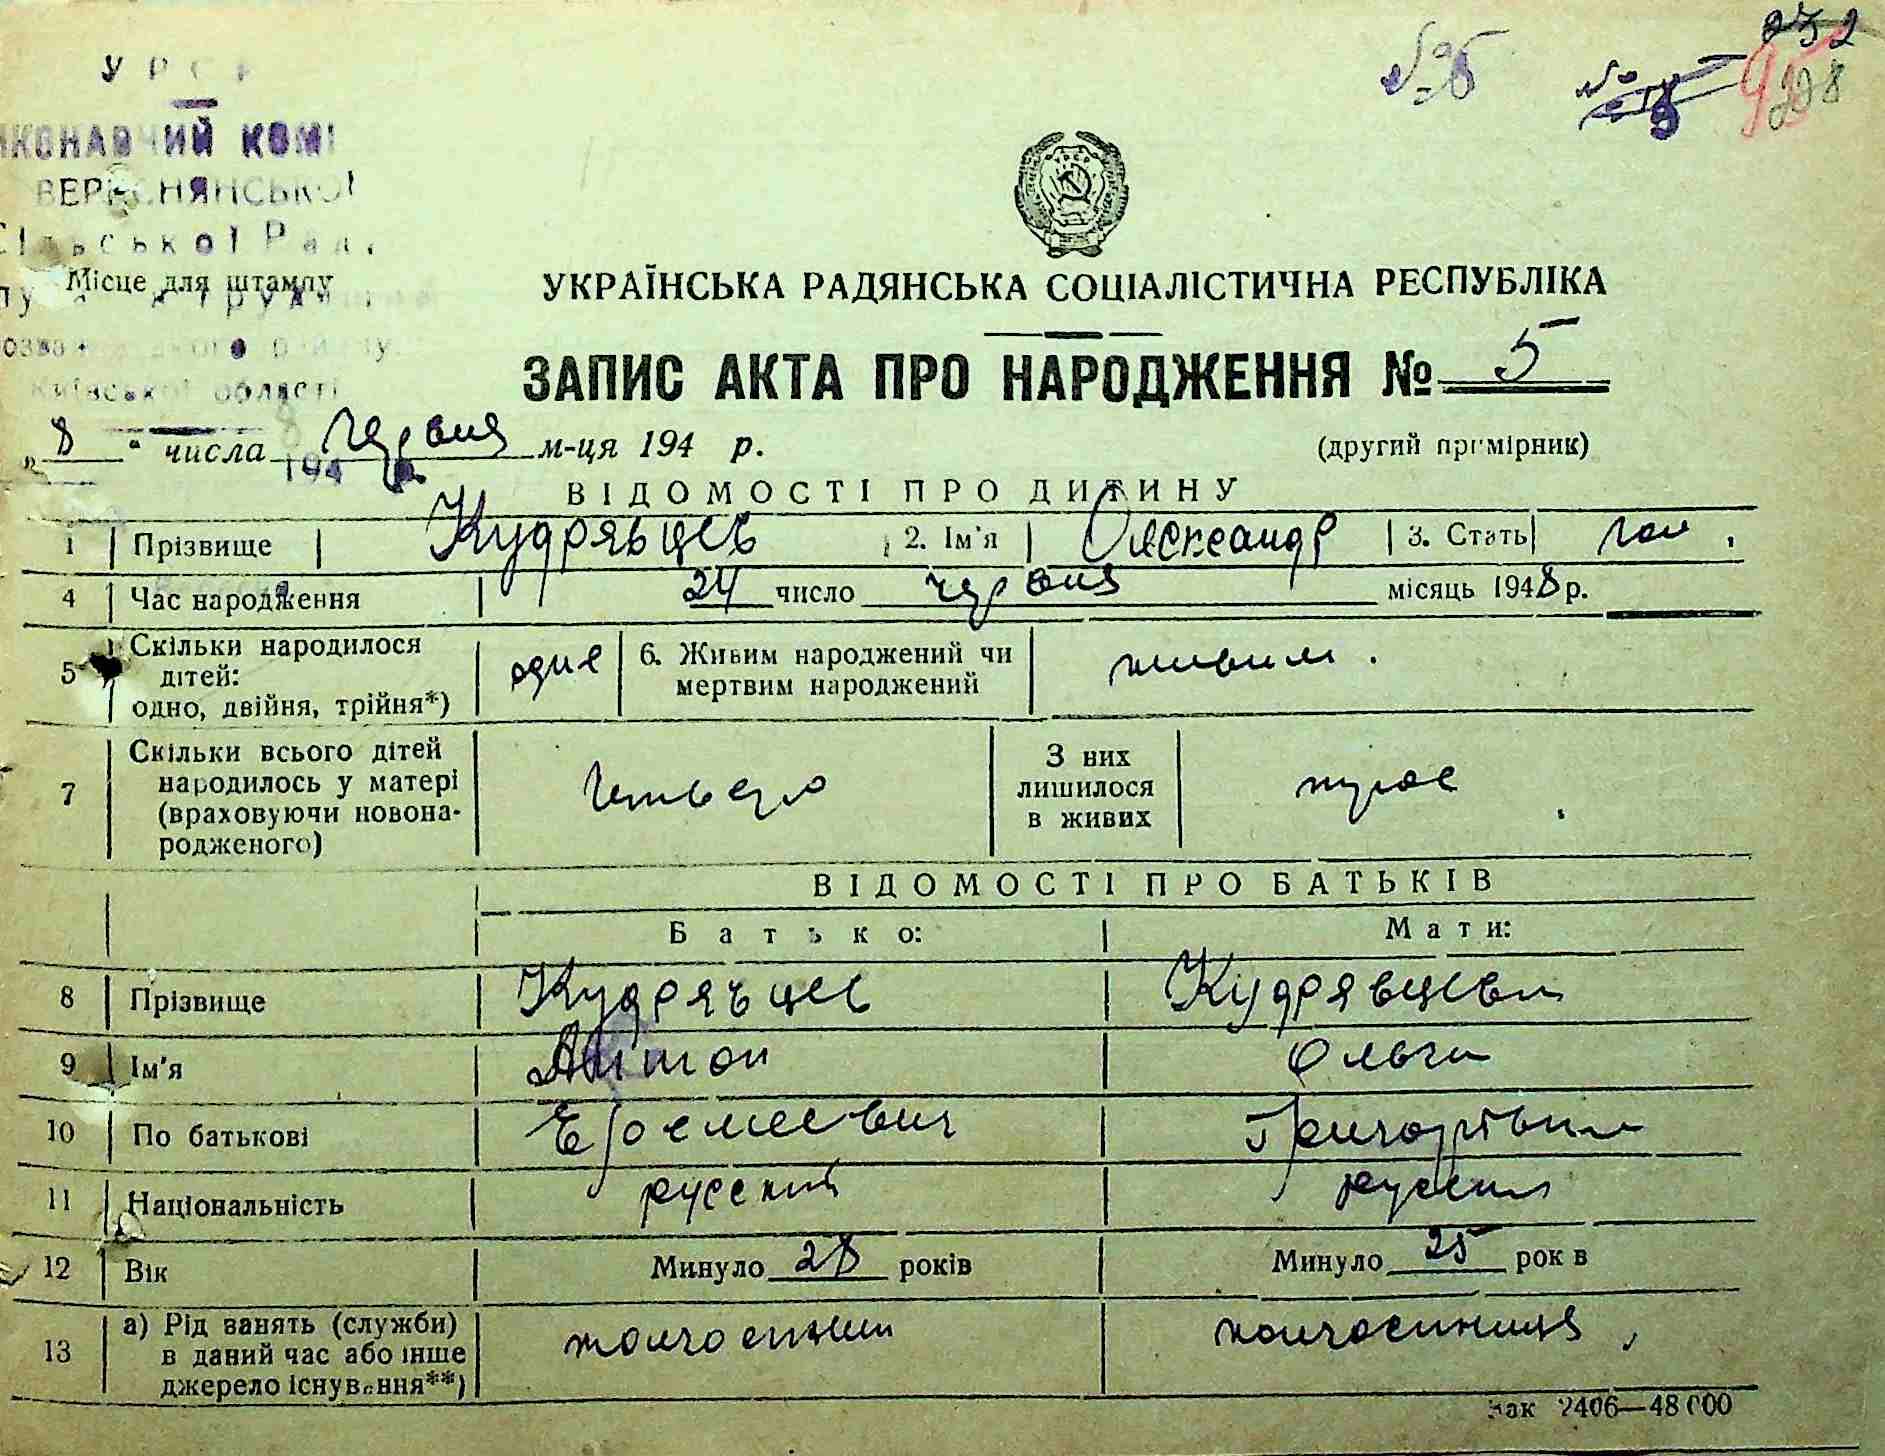 УРСР
ВИКОНАВЧИЙ КОМІ
ВЕРЕСНЯНСЬКОЇ
Сільської Рад
Місце для штампу
Київської області
№ 95
232
95
208
УКРАЇНСЬКА РАДЯНСЬКА СОЦІАЛІСТИЧНА РЕСПУБЛІКА
ЗАПИС АКТА ПРО НАРОДЖЕННЯ № 5
„8“ числа червня м-ця 194 р.
(другий примірник)
ВІДОМОСТІ ПРО ДИТИНУ
1 Прізвище Кудрявцев 2. Ім'я Олександр 3. Стать чол.
4 Час народження 24 число червня місяць 1948 р.
5 Скільки народилося дітей: одно, двійня, трійня*) одне 6. Живим народжений чи мертвим народжений живим.
7 Скільки всього дітей народилось у матері (враховуючи новонародженого) Четверо З них лишилося в живих троє
ВІДОМОСТІ ПРО БАТЬКІВ
Батько: Мати:
8 Прізвище Кудрявцев Кудрявцева
9 Ім'я Антон Ольга
10 По батькові Єремеевич Григорівна
11 Національність русский русская
12 Вік Минуло 28 років Минуло 25 років
13 а) Рід занять (служби) в даний час або інше джерело існування**) колгоспник колгоспниця
Зак 2406—48000